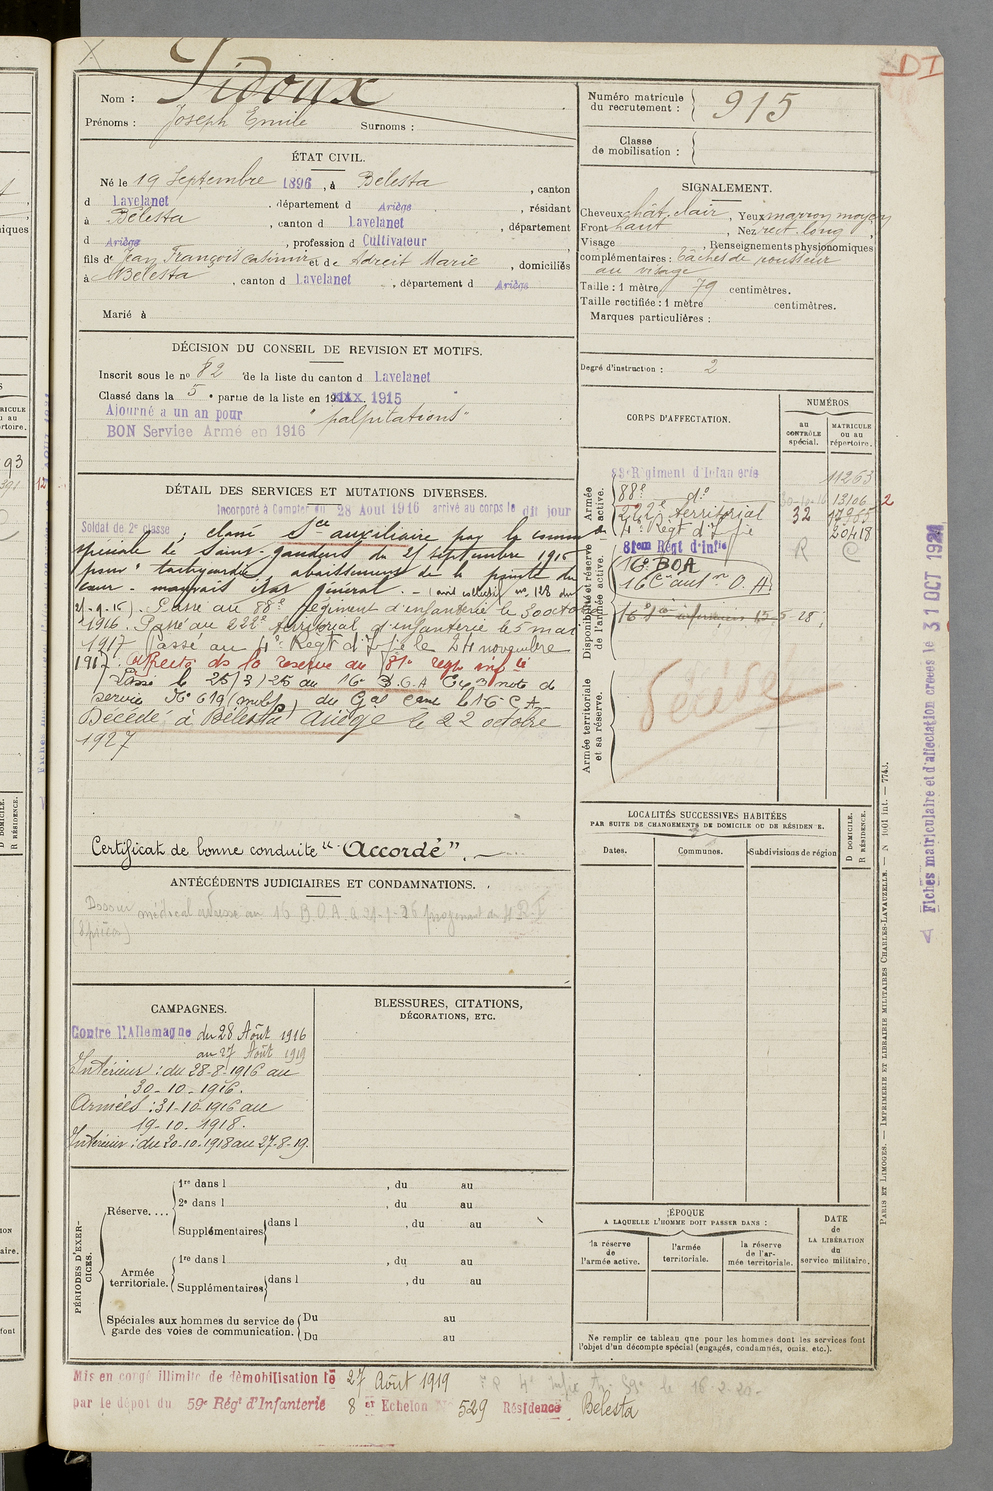 DI
Nom : Pidoux
Prénoms : Joseph Emile Surnoms :
Numéro matricule du recrutement : 915
Classe de mobilisation :
ÉTAT CIVIL.
Né le 19 Septembre 1896, à Bélesta, canton
d Lavelanet, département d Ariège, résidant
à Bélesta, canton d Lavelanet, département
d Ariège, profession d Cultivateur
fils de Jean François Casimir et de Adreit Marie, domiciliés
à Bélesta, canton d Lavelanet, département d Ariège
Marié à
SIGNALEMENT.
Cheveux chât. clair, Yeux marron moyen
Front haut, Nez rect. long,
Visage , Renseignements physionomiques
complémentaires : Tâches de rousseur
au visage
Taille : 1 mètre 79 centimètres.
Taille rectifiée : 1 mètre centimètres.
Marques particulières :
Degré d'instruction : 2
DÉCISION DU CONSEIL DE REVISION ET MOTIFS.
Inscrit sous le no 82 de la liste du canton d Lavelanet
Classé dans la 5e partie de la liste en 19 1915
Ajourné a un an pour "palpitations"
BON Service Armé en 1916
CORPS D'AFFECTATION.
NUMÉROS
au CONTRÔLE spécial.
MATRICULE ou au répertoire.
Armée active.
88e Régiment d'Infanterie 11263
88e do 30-10-16 13106
222e territorial 32
4e Régt d'Ifie 20418
Disponibilité et réserve de l'armée active.
81eme Régt d'Infie R C
16e BOA
16e O. A.
Armée territoriale et sa réserve.
Décédé
DÉTAIL DES SERVICES ET MUTATIONS DIVERSES.
Incorporé à Compter du 28 Août 1916 arrivé au corps le dit jour
Soldat de 2e classe ; classé Sce auxiliaire par la comm
spéciale de Saint-Gaudens du 21 septembre 1916
pour "tachycardie, abaissement de la pointe du
cœur - mauvais état général. - (avis collectif no 128 du
21-9-16). Passé au 88e régiment d'infanterie le 30 octobre
1916. Passé au 222e territorial d'infanterie le 5 mai
1917 Passé au 4e Regt d'Ifie le 24 novembre
1917. Affecté ds la reserve au 81e regt inf ie
Passé le 25/3/25 au 16e B.O.A note de
service No 619 du Gal Cant le 16 C A
Décédé à Bélesta Ariège le 22 octobre
1927
Certificat de bonne conduite "Accordé".
ANTÉCÉDENTS JUDICIAIRES ET CONDAMNATIONS.
Dossier médical adressé au 16 B.O.A. le 21-1-26 provenant du 4 R.I
LOCALITÉS SUCCESSIVES HABITÉES
PAR SUITE DE CHANGEMENTS DE DOMICILE OU DE RÉSIDENCE.
Dates.
Communes.
Subdivisions de région
D DOMICILE.
R RÉSIDENCE.
CAMPAGNES.
Contre l'Allemagne du 28 Août 1916
au 27 Août 1919
Intérieur : du 28-8-1916 au
30-10-1916.
Armées : 31-10-1916 au
19-10-1918.
Intérieur : du 20-10-1918 au 27-8-19.
BLESSURES, CITATIONS,
DÉCORATIONS, ETC.
PÉRIODES D'EXERCICES.
Réserve....
1re dans l , du au
2e dans l , du au
Supplémentaires dans l , du au
Armée territoriale.
1re dans l , du au
Supplémentaires dans l , du au
Spéciales aux hommes du service de garde des voies de communication.
Du au
Du au
ÉPOQUE
A LAQUELLE L'HOMME DOIT PASSER DANS :
la réserve de l'armée active.
l'armée territoriale.
la réserve de l'armée territoriale.
DATE de LA LIBÉRATION du service militaire.
Ne remplir ce tableau que pour les hommes dont les services font
l'objet d'un décompte spécial (engagés, condamnés, omis, etc.).
Mis en congé illimité de démobilisation le 27 Août 1919
par le dépôt du 59e Rég' d'Infanterie 8 et Echelon No 529 Résidence Bélesta
PARIS ET LIMOGES. — IMPRIMERIE ET LIBRAIRIE MILITAIRES CHARLES-LAVAUZELLE.
Fiches matriculaire et d'affectation créées le 31 OCT 1921